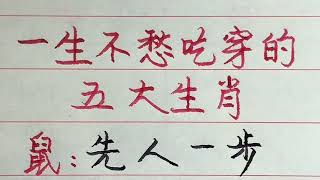 一生不愁吃穿的
五大生肖
鼠:先人一步